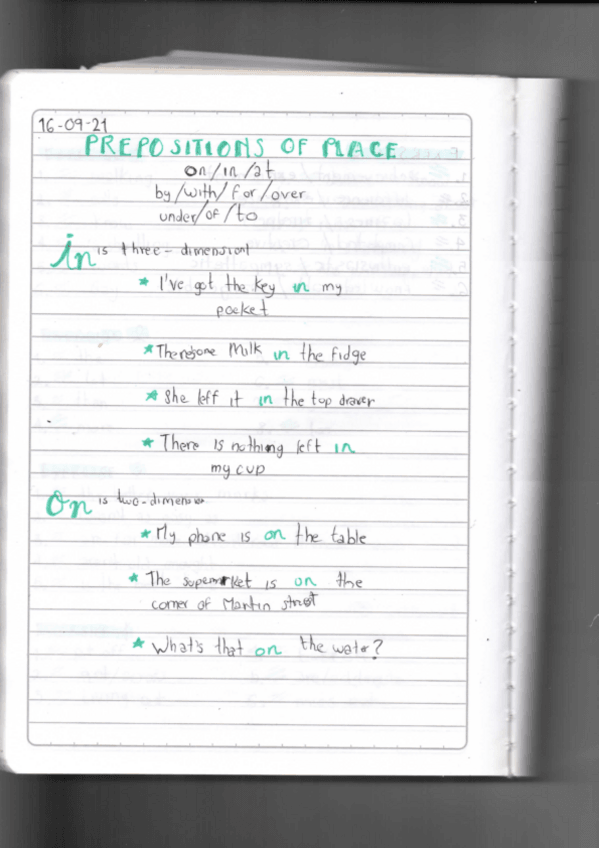 16-09-21
PREPOSITIONS OF PLACE
on/in/at
by/with/for/over
under/of/to
in is three-dimensional
* I've got the key in my
pocket
* There's some Milk in the fidge
* She left it in the top drawer
* There is nothing left in
my cup
On is two-dimension
* My phone is on the table
* The supermarket is on the
corner of Martin street
* What's that on the water?